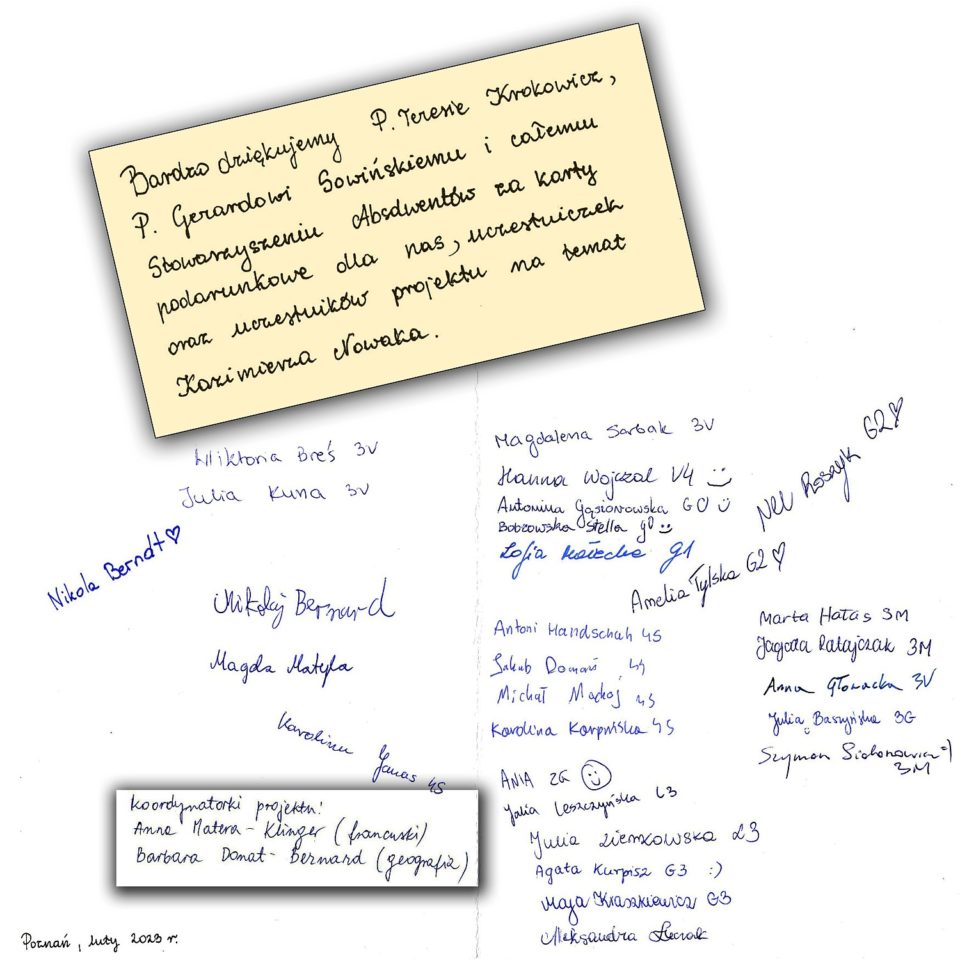 Bardzo dziękujemy P. Teresie Krokowicz,
P. Gerardowi Sowińskiemu i całemu
Stowarzyszeniu Absdwentów za karty
podarunkowe dla nas, uczestniczek
oraz uczestników projektu na temat
Kazimierza Nowaka.
Wiktoria Breś 3V
Julia Kuna 3V
Nikola Berndt ♡
Mikołaj Bernard
Magda Matyla
Karolina Janas 4S
koordynatorki projektu:
Anna Matera-Klinger (francuski)
Barbara Donat-Bernard (geografia)
Poznań, luty 2023 r.
Magdalena Sarbak 3V
Hanna Wojczal V4 :)
Antonina Gąsiorowska G0 :)
Bobrowska Stella g0 :)
Zofia Małecka g1
Nel Roszyk G2 ♡
Amelia Tylska G2 ♡
Antoni Handschuh 4S
Jakub Domań 4S
Michał Maćkoj 4S
Karolina Karpińska 4S
ANIA 2G :)
Julia Leszczyńska L3
Julia Ziemkowska L3
Agata Kurpisz G3 :)
Maja Kraszkiewicz G3
Aleksandra
Marta Hałas 3M
Jagoda Ratajczak 3M
Anna Głowacka 3V
Julia Baszyńska 3G
Szymon =)
3M